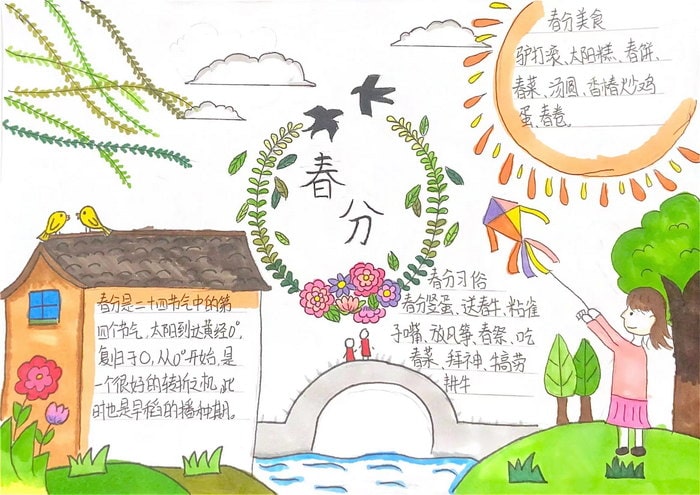 春分
春分美食
驴打滚、太阳糕、春饼、
春菜、汤圆、香椿炒鸡
蛋、春卷。
春分是二十四节气中的第
四个节气,太阳到达黄经0°,
复归于0,从0°开始,是
一个很好的转折之机,此
时也是早稻的播种期。
春分习俗
春分竖蛋、送春牛、粘雀
子嘴、放风筝、春祭、吃
春菜、拜神、犒劳
耕牛